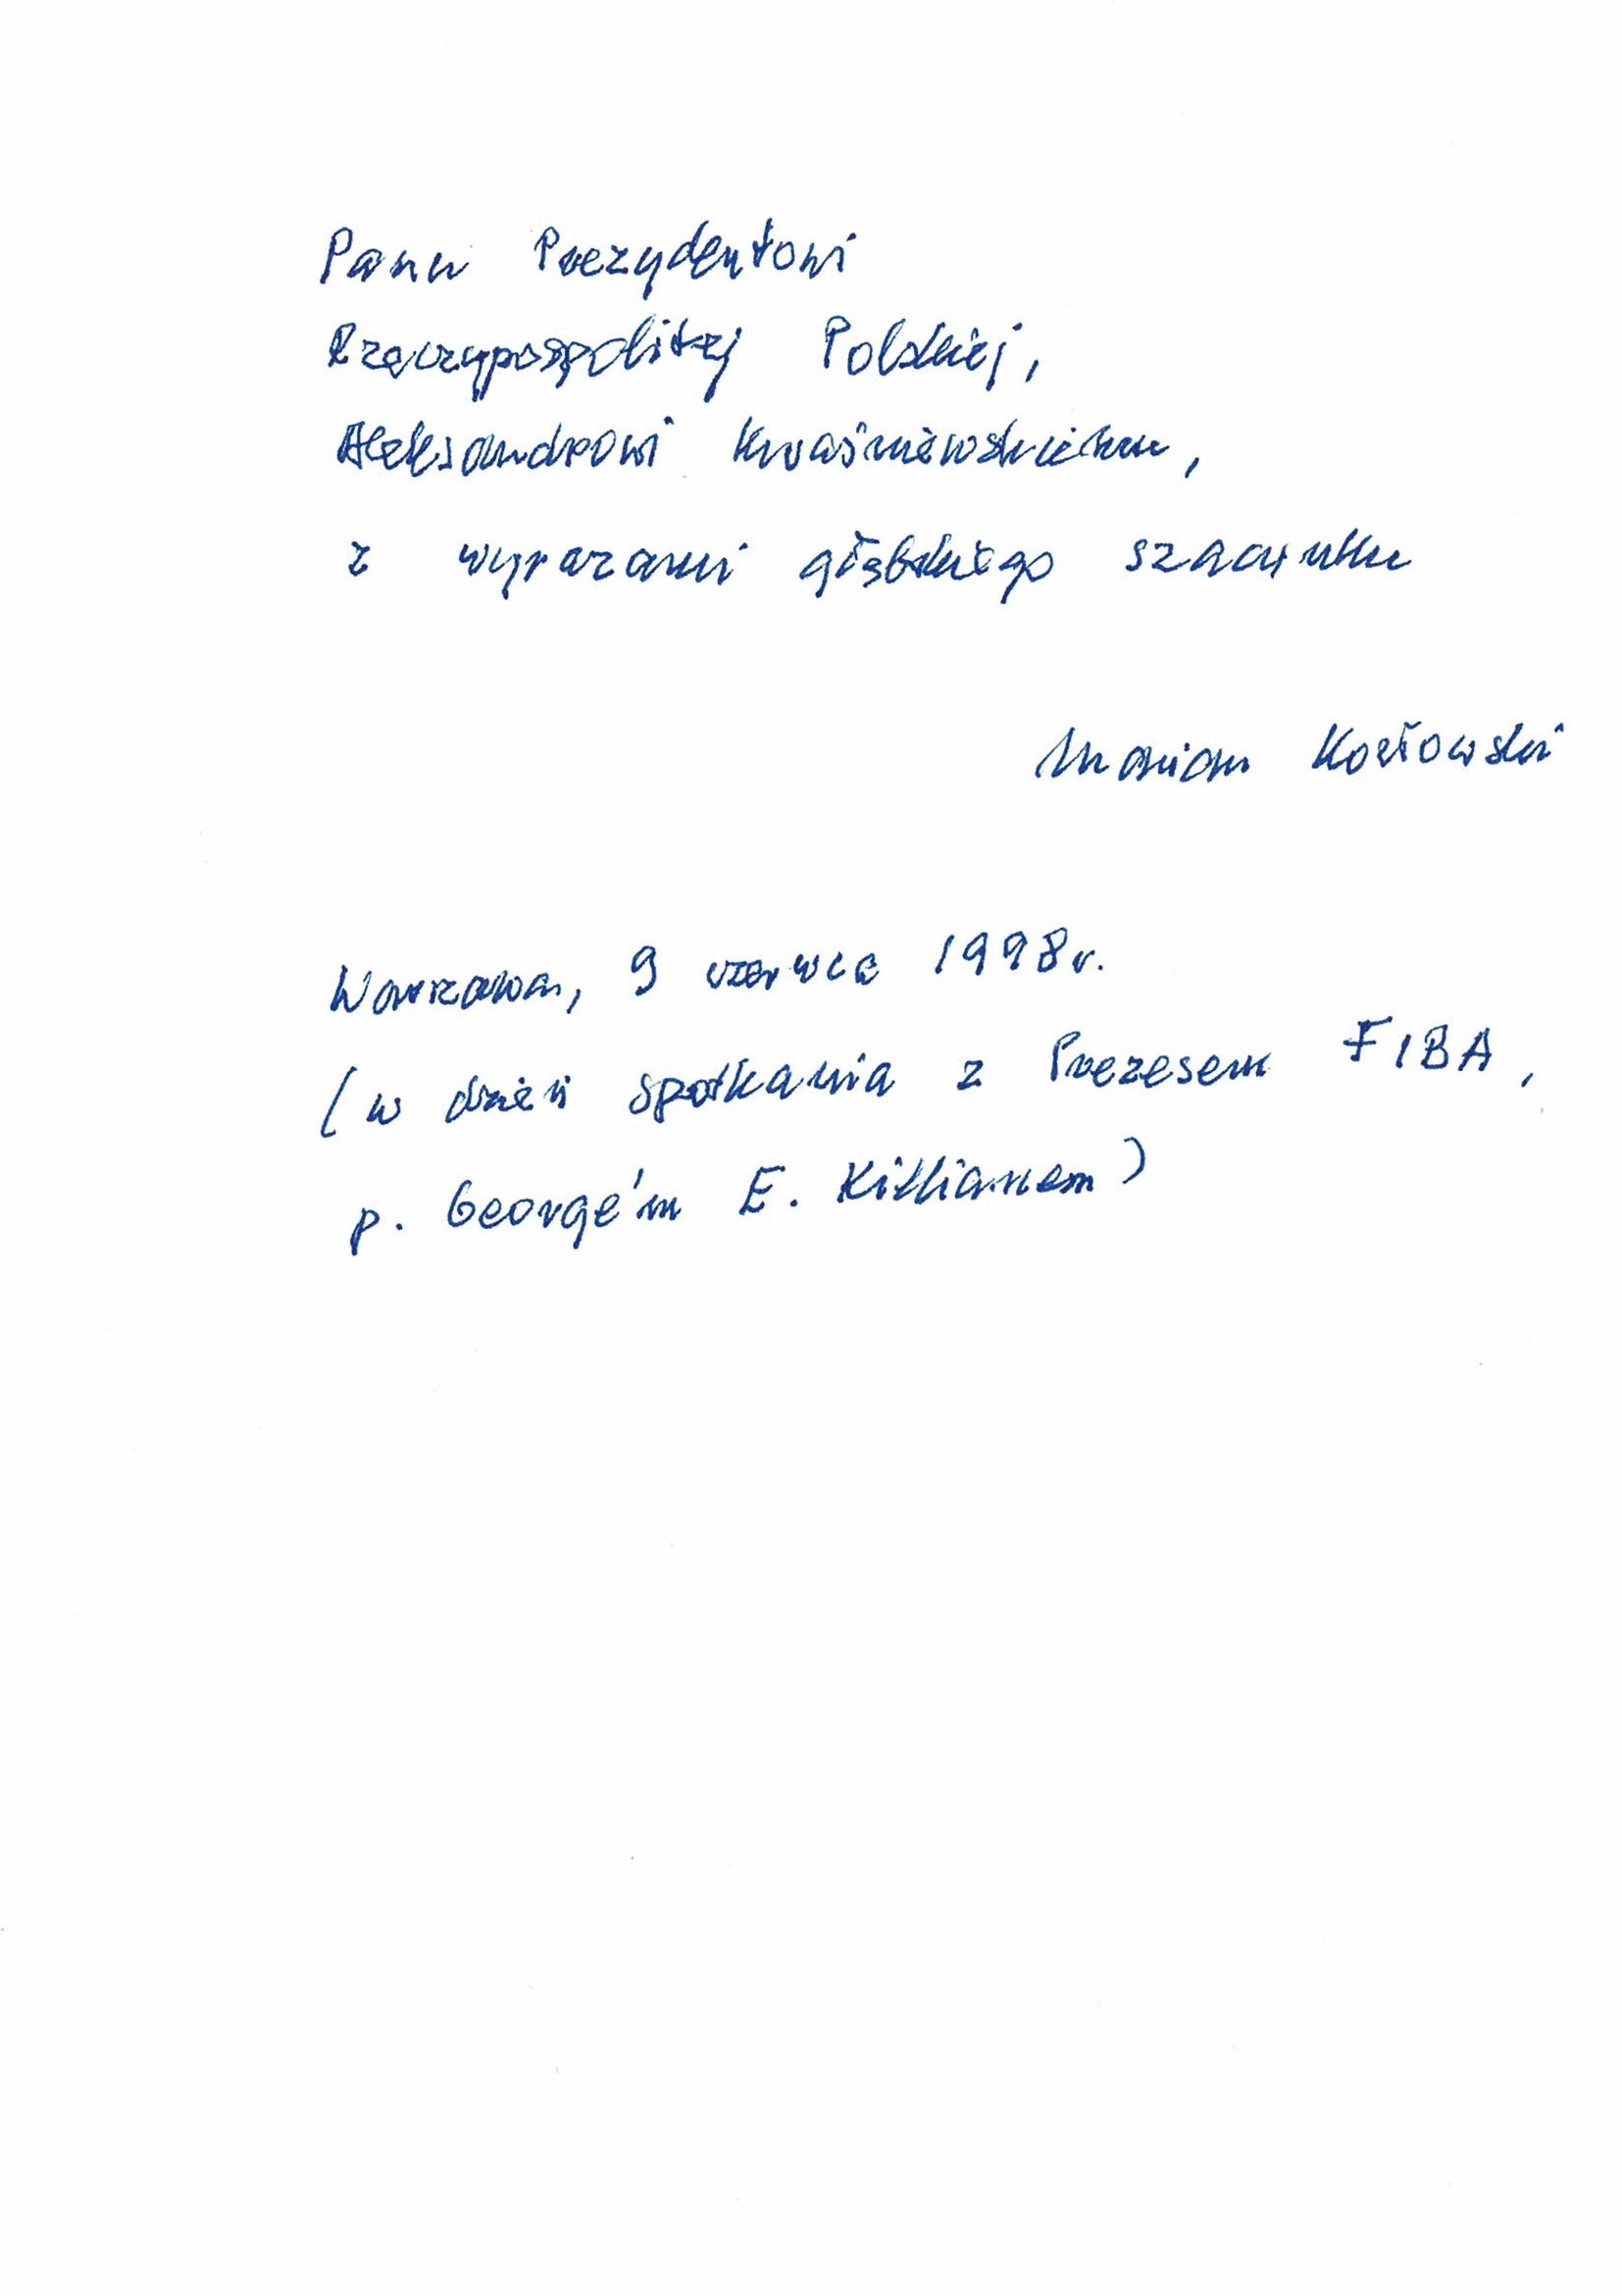 Panu Prezydentowi
Rzeczypospolitej Polskiej,
Aleksandrowi Kwaśniewskiemu,
z wyrazami głębokiego szacunku
Marian Kozłowski
Warszawa, 9 czerwca 1998 r.
(w dzień spotkania z Prezesem FIBA,
p. George'm E. Killianem)